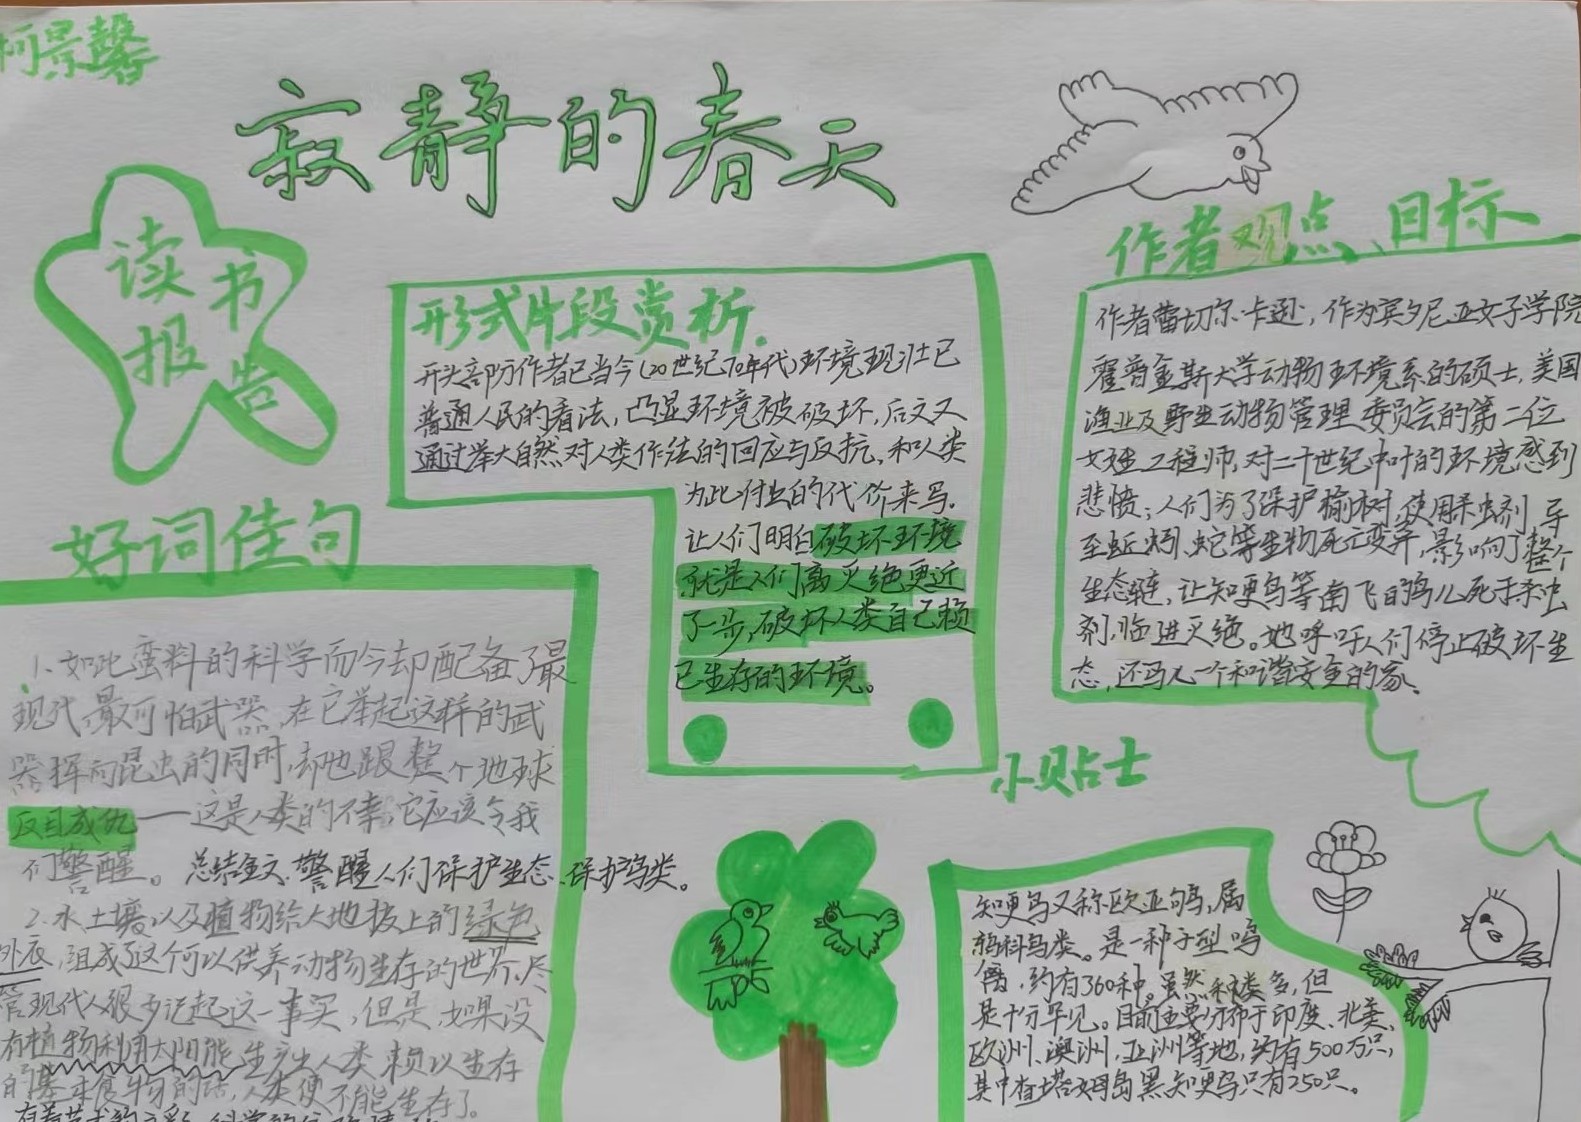 柯景馨
寂静的春天
读书
报告
形式片段赏析.
开头部份作者已当今(20世纪70年代)环境现状已
普通人民的看法,凸显环境被破坏,后文又
通过举大自然对人类作法的回应与反抗,和人类
为此付出的代价来写.
让人们明白破坏环境
就是人们离灭绝更近
了一步,破坏人类自己赖
已生存的环境。
作者观点、目标
作者蕾切尔·卡逊,作为宾夕尼亚女子学院
霍普金斯大学动物环境系的硕士,美国
渔业及野生动物管理委员会的第二位
女工程师,对二十世纪中叶的环境感到
悲愤;人们为了保护榆树,使用杀虫剂,导
至蚯蚓、蛇等生物死亡变异,影响了整个
生态链,让知更鸟等南飞的鸟儿死于杀虫
剂,临进灭绝。她呼吁人们停止破坏生
态,还鸟儿一个和谐安全的家.
好词佳句
1、如此蛮料的科学而今却配备了最
现代,最可怕武器,在它举起这样的武
器挥向昆虫的同时,却也跟整个地球
反目成仇——这是人类的不幸,它应该令我
们警醒。 总结全文、警醒人们保护生态、保护鸟类。
2、水土壤以及植物给大地披上的绿色
外衣,组成了这个可以供养动物生存的世界,尽
管现代人很少记起这一事实,但是,如果没
有植物利用太阳能生产出人类赖以生存
的基本食物的话,人类便不能生存了。
小贴士
知更鸟又称欧亚鸲,属
鸫科鸟类。是一种子型鸣
禽,约有360种。虽然种类多,但
是十分罕见。目前主要分布于印度、北美、
欧洲、澳洲、亚洲等地,约有500万只,
其中查塔姆岛黑知更鸟只有250只。